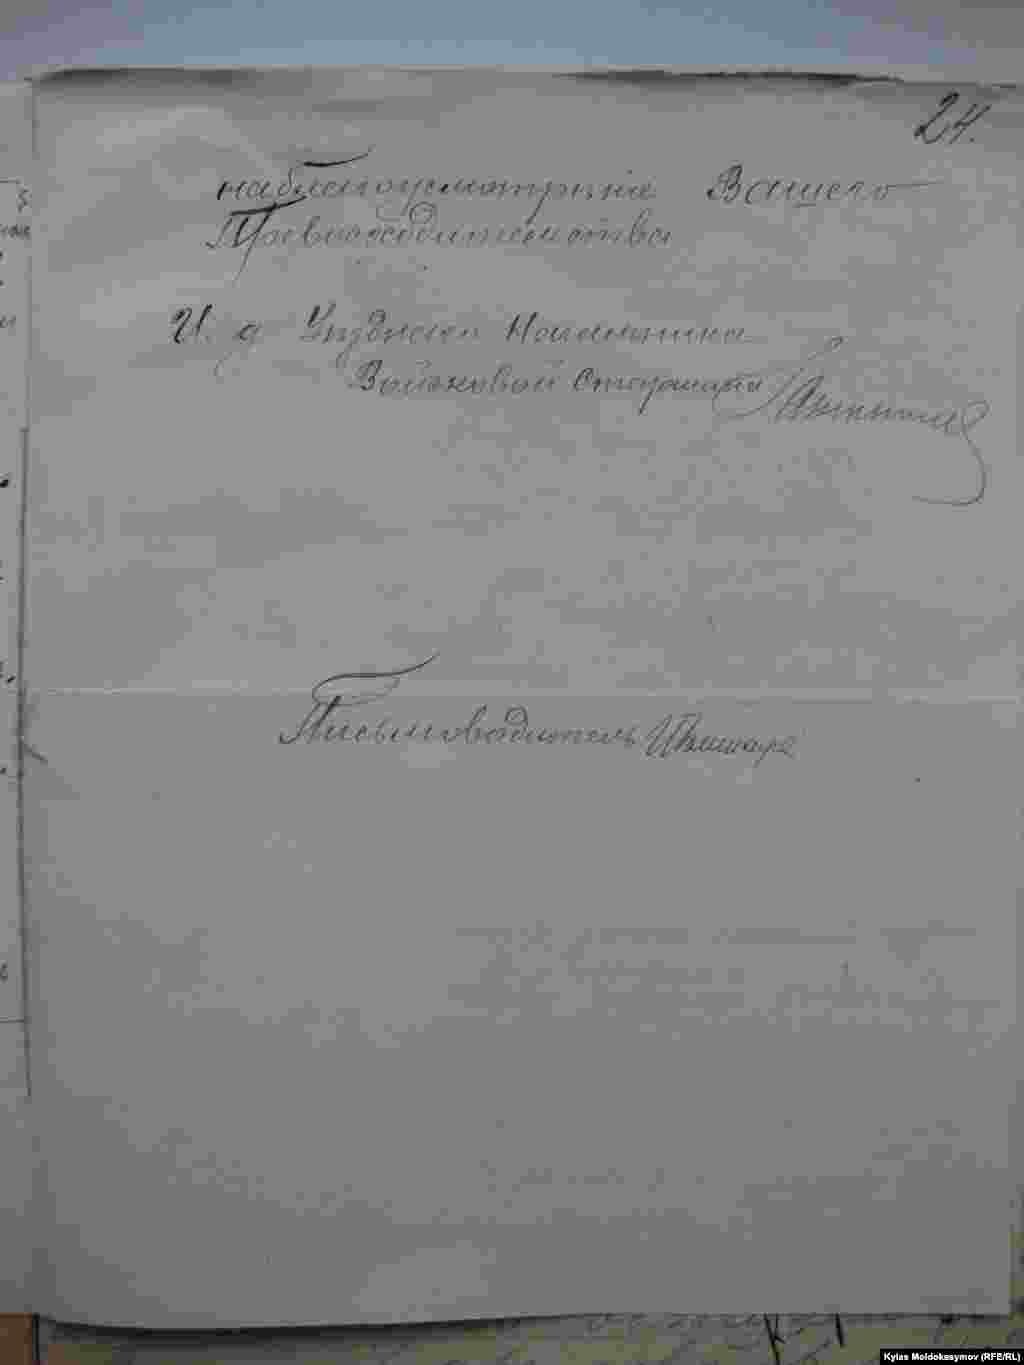 24.
на благоусмотрение Вашего
Превосходительства
И. д. Уезднаго Начальника
Войсковой Старшина
Письмоводитель
Kyias Moldokasymov (RFE/RL)